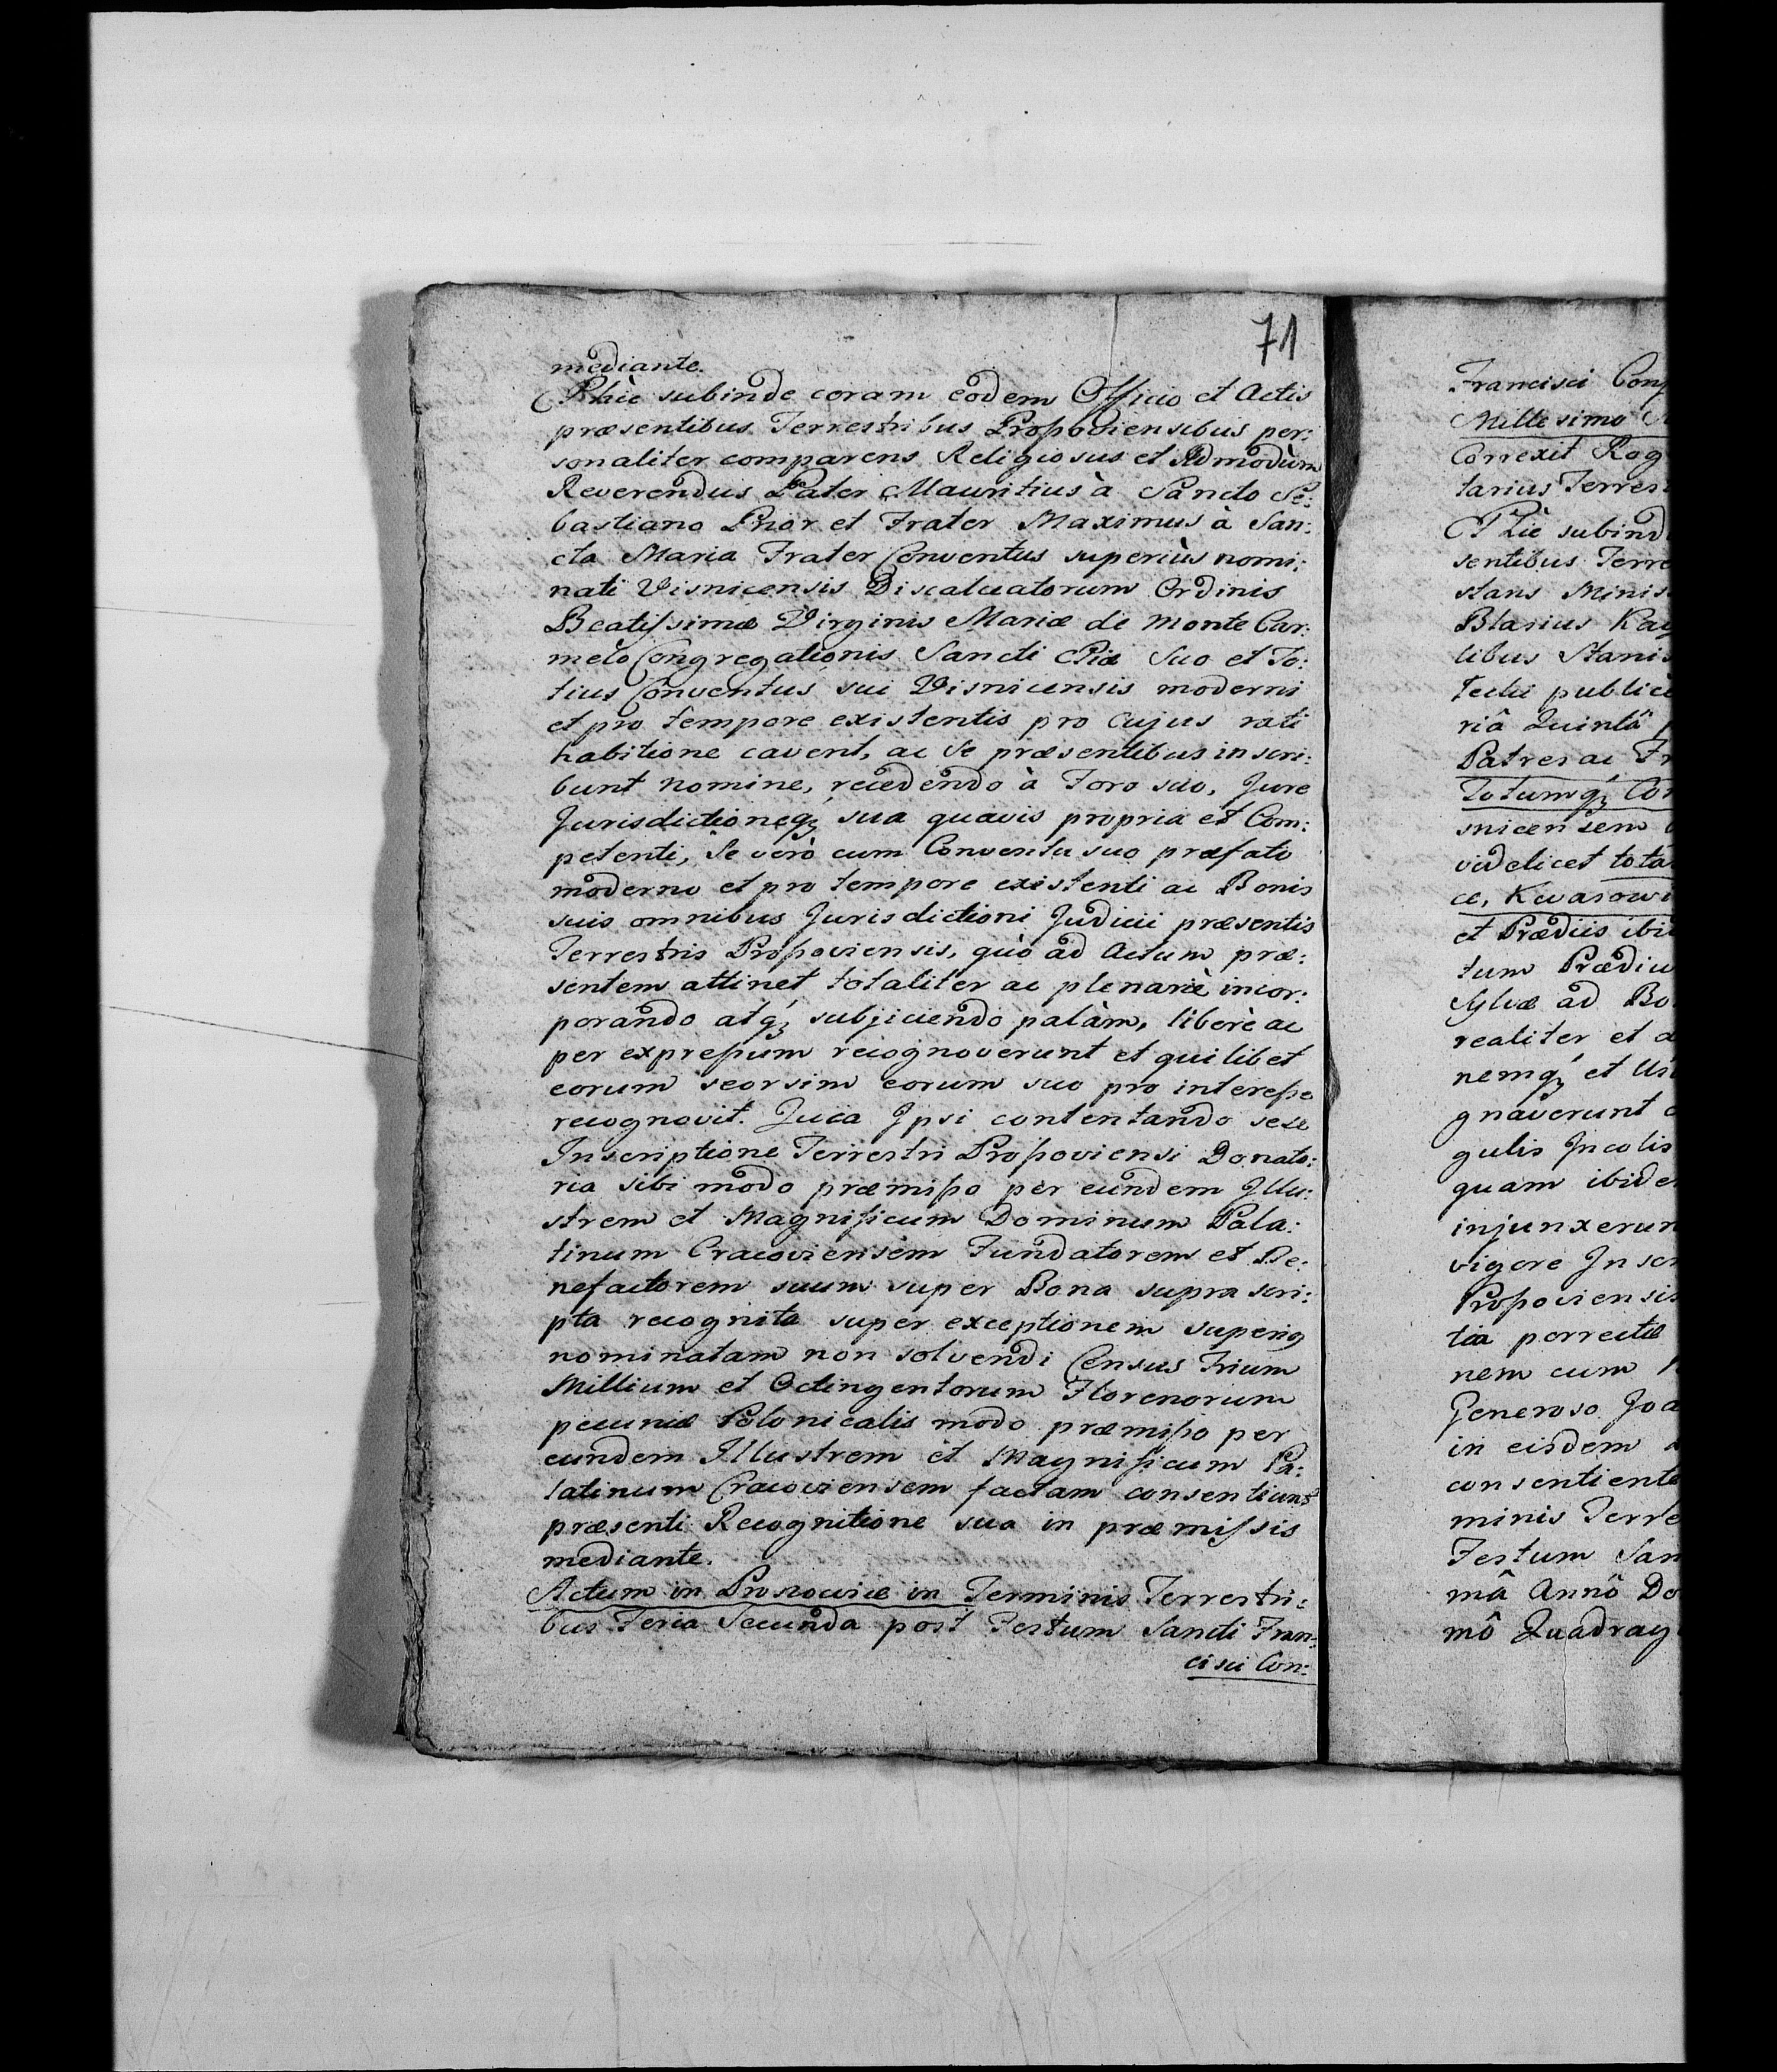 71
mediante.
Hìc subinde coram eodem Officio et Actis
præsentibus Terrestribus Proßoviensibus per:
sonaliter comparens Religiosus et Admodùm
Reverendus Pater Mauritius à Sancto Se:
bastiano Prior et Frater Maximus à San:
cta Maria Frater Conventus superiùs nomi:
nati Visnicensis Discalceatorum Ordinis
Beatißimæ Virginis Mariæ de Monte Car:
melo Congregationis Sancti Eliæ Suo et To:
tius Conventus sui Visnicensis moderni
et pro tempore existentis pro cujus rati
habitione cavent, ac se præsentibus inscri:
bunt nomine, recedendo à Foro suo, Jure
Jurisdictioneq; sua quavis propria et Com:
petenti, Se verò cum Conventu suo præfato
moderno et pro tempore existenti ac Bonis
suis omnibus Jurisdictioni Judicii præsentis
Terrestris Proßoviensis, quò ad Actum præ:
sentem attinet totaliter ac plenariè incor:
porando atq; subjiciendo palàm, liberè ac
per expreßum recognoverunt et quilibet
eorum seorsim eorum suo pro intereße
recognovit. Quia Ipsi contentando sese
Inscriptione Terrestri Proßoviensi Donato:
ria sibi modo præmißo per eundem Illu:
strem et Magnificum Dominum Pala:
tinum Cracoviensem Fundatorem et Be:
nefactorem suum super Bona supra scri:
pta recognita super exceptionem superig
nominatam non solvendi Census Trium
Millium et Octingentorum Florenorum
pecuniæ Polonicalis modo præmißo per
eundem Illustrem et Magnificum Pa:
latinum Cracoviensem factam consentiunt
præsenti Recognitione sua in præmißis
mediante.
Actum in Proszovice in Terminis Terrestri:
bus Feria Secunda post Festum Sancti Fran:
cisci Con:
Francisci Conf
Millesimo
Correxit Rog
tarius Terres
Hìc subind
sentibus Terre
stans Minis
Blasius Ka
libus Stanis
tecki publice
riâ Quintâ p
Patres ac Fr
Totumq; Con
snicensem
videlicet tota
ce, Kwasowi
et Prædiis ibi
tum Prædiu
Sylvæ ad Bo
realiter et a
nemq; et Us
gnaverunt
gulis Incolis
quam ibide
injunxerun
vigore Inscr
Proßoviensis
tia porrectæ
nem cum
Generoso Joa
in eisdem
consentiente
minis Terre
Festum San
mâ Annô Do
mô Quadrag